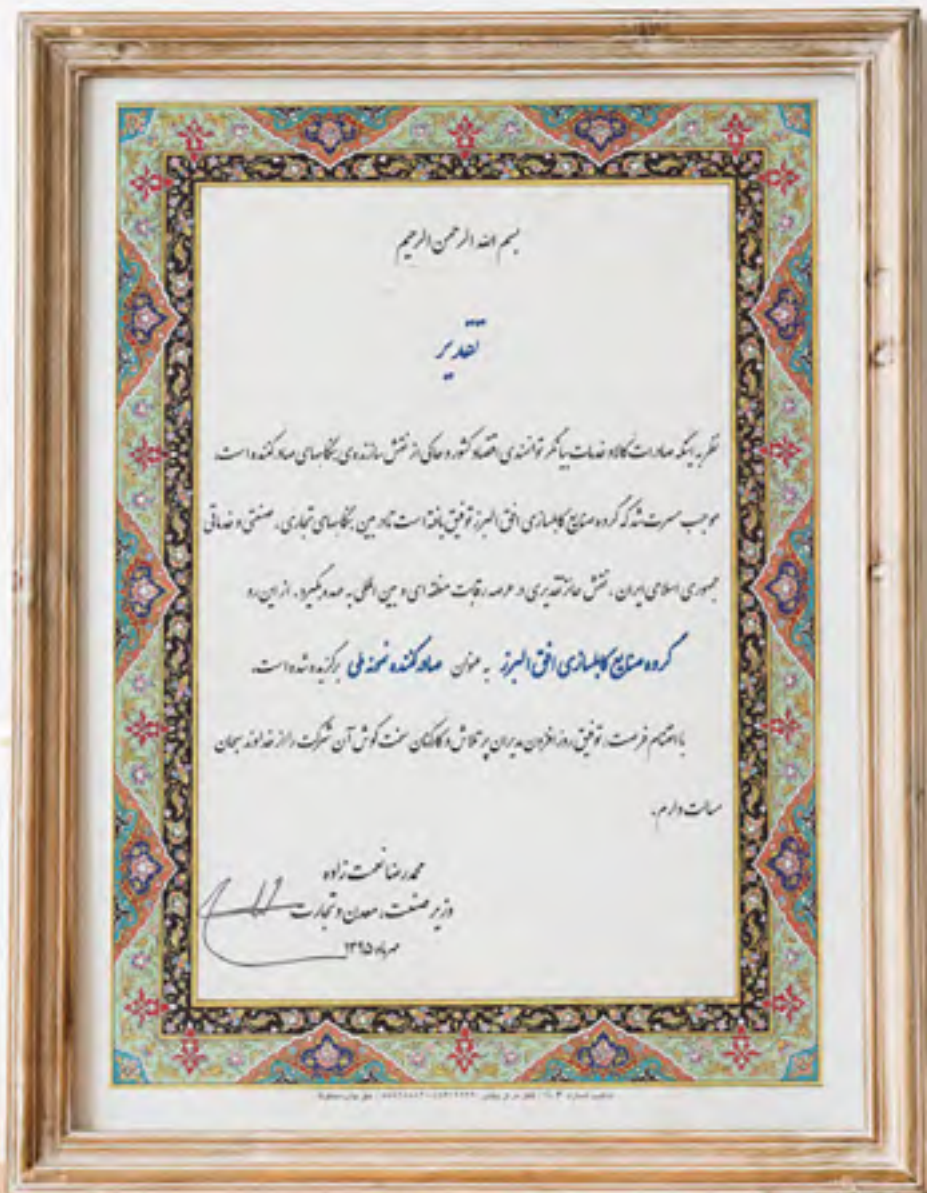 بسم الله الرحمن الرحیم
تقدیر
نظر به اینکه صادرات کالا و خدمات بیانگر توانمندی اقتصاد کشور و حاکی از نقش سازنده‌ی بنگاههای صادرکننده است،
موجب مسرت شد که گروه صنایع کابلسازی افق البرز توفیق یافته است تا در بین بنگاههای تجاری، صنعتی و خدماتی
جمهوری اسلامی ایران، نقش حائز تقدیری در عرصه رقابت منطقه ای و بین المللی به عهده بگیرد. از این رو
گروه صنایع کابلسازی افق البرز به عنوان صادرکننده نمونه ملی برگزیده شده است.
با اغتنام فرصت، توفیق روزافزون مدیران پر تلاش و کارکنان سخت کوش آن شرکت را از خداوند سبحان
مسالت دارم.
محمدرضا نعمت زاده
وزیر صنعت، معدن و تجارت
مهرماه ۱۳۹۵